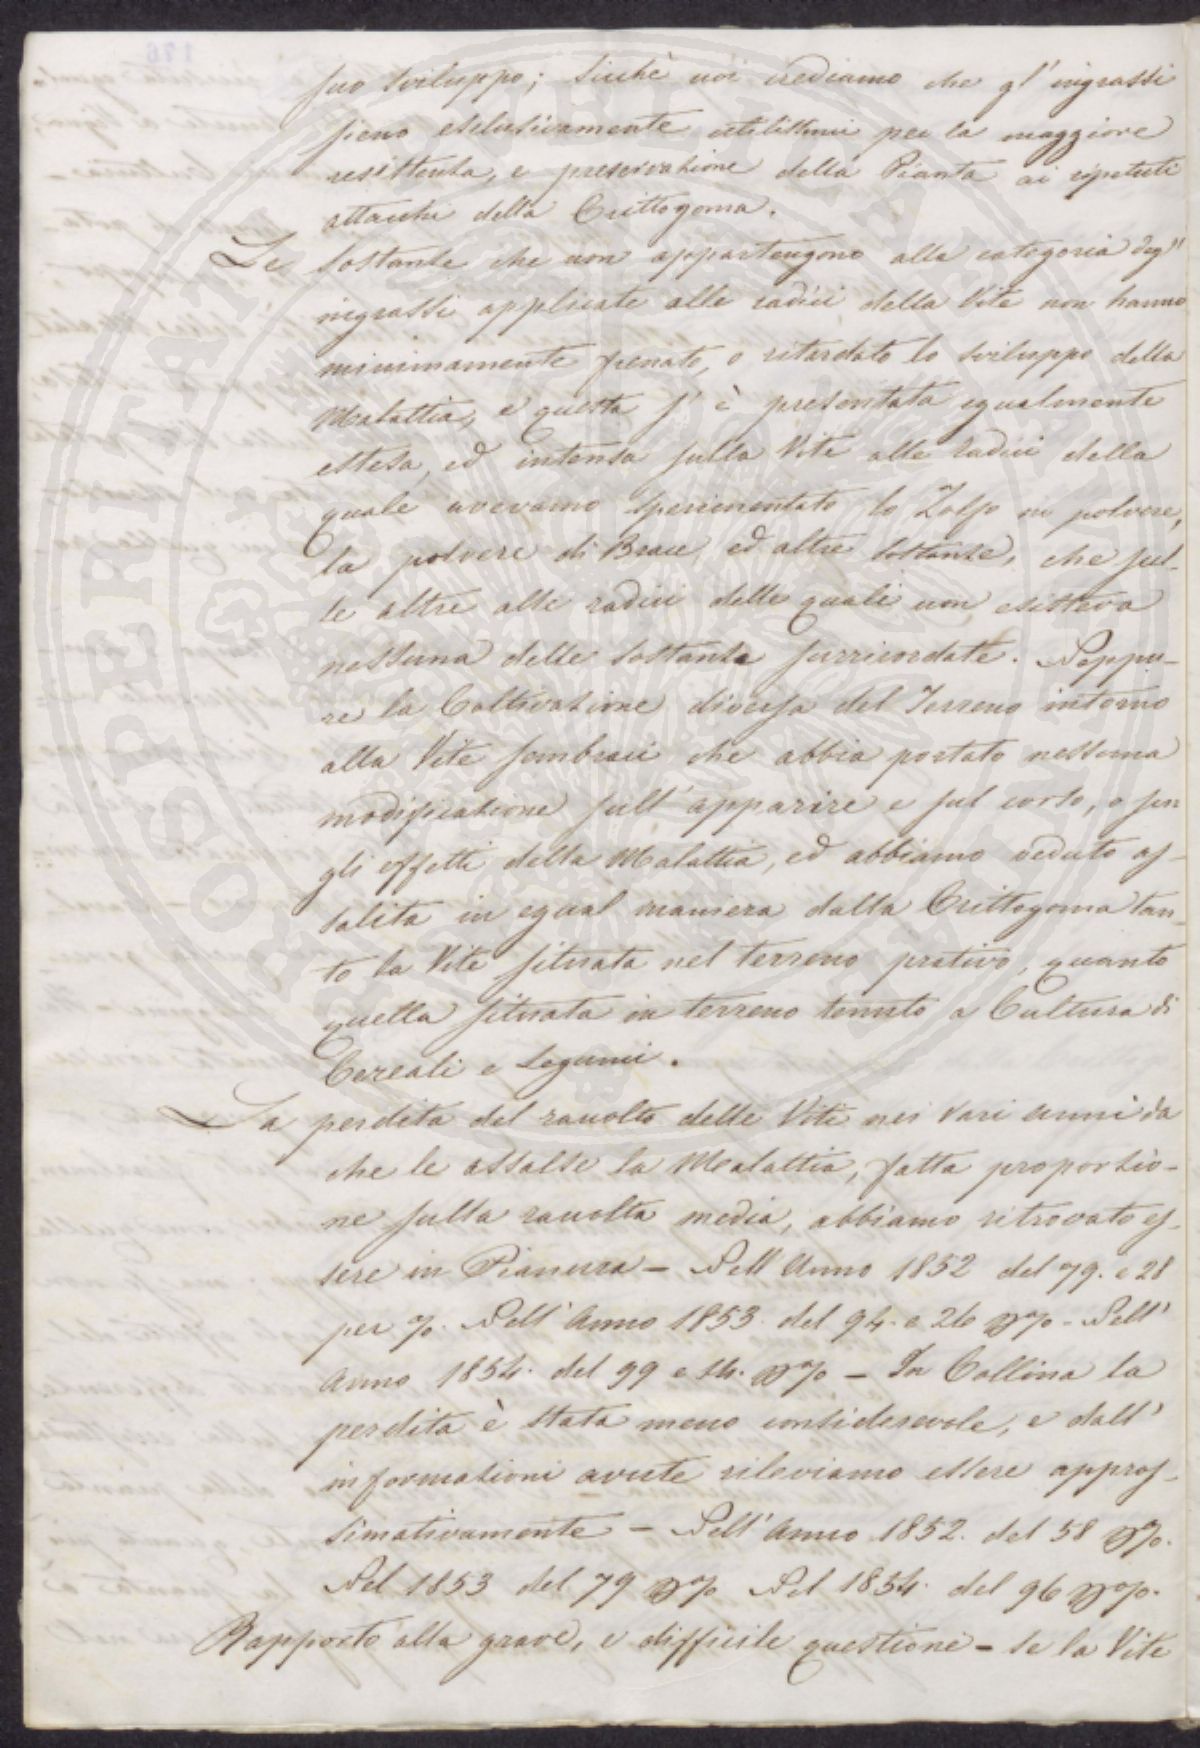 suo sviluppo; sicchè noi crediamo che gl'ingrassi
sieno esclusivamente utilissimi per la maggiore
resistenza, e preservazione della Pianta ai ripetuti
attacchi della Crittogama.
Le sostanze che non appartengono alla categoria degl'
ingrassi applicate alle radici della Vite non hanno
minimamente frenato, o ritardato lo sviluppo della
Malattia, e questa s'è presentata egualmente
estesa, ed intensa sulla Vite alle radici della
quale avevamo sperimentato lo Zolfo in polvere,
la polvere di Brace, ed altre sostanze, che sul-
le altre alle radici delle quali non esisteva
nessuna delle sostanze surricordate. Neppu-
re la Coltivazione diversa del Terreno intorno
alla Vite sembraci che abbia portato nessuna
modificazione sull'apparire e sul corso, o su
gli effetti della Malattia, ed abbiamo veduto as-
salita in egual maniera dalla Crittogama tan-
to la Vite situata nel terreno prativo, quanto
quella situata in terreno tenuto a Cultura di
Cereali e Legumi.
La perdita del raccolto delle Viti nei vari anni da
che le assalse la Malattia, fatta proporzio-
ne sulla raccolta media, abbiamo ritrovato es-
sere in Pianura - Nell'Anno 1852 del 79. e 28
per %. Nell'Anno 1853. del 94. e 26 p% - Nell'
Anno 1854. del 99 e 14. p% - In Collina la
perdita è stata meno considerevole, e dall'
informazioni avute rileviamo essere appros-
simativamente - Nell'Anno 1852. del 58 p%.
Nel 1853 del 79 p% Nel 1854. del 96 p%.
Rapporto alla grave, e difficile questione - se la Vite